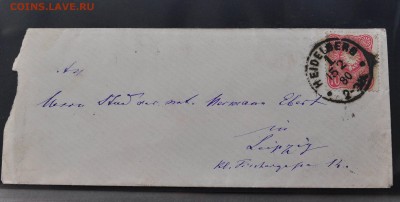 COINS.LAVE.RU
HEIDELBERG
1
15 2
80
An
Herrn Stud rer. nat. Hermann Ebert
in
Leipzig
Kl. Fleischergasse